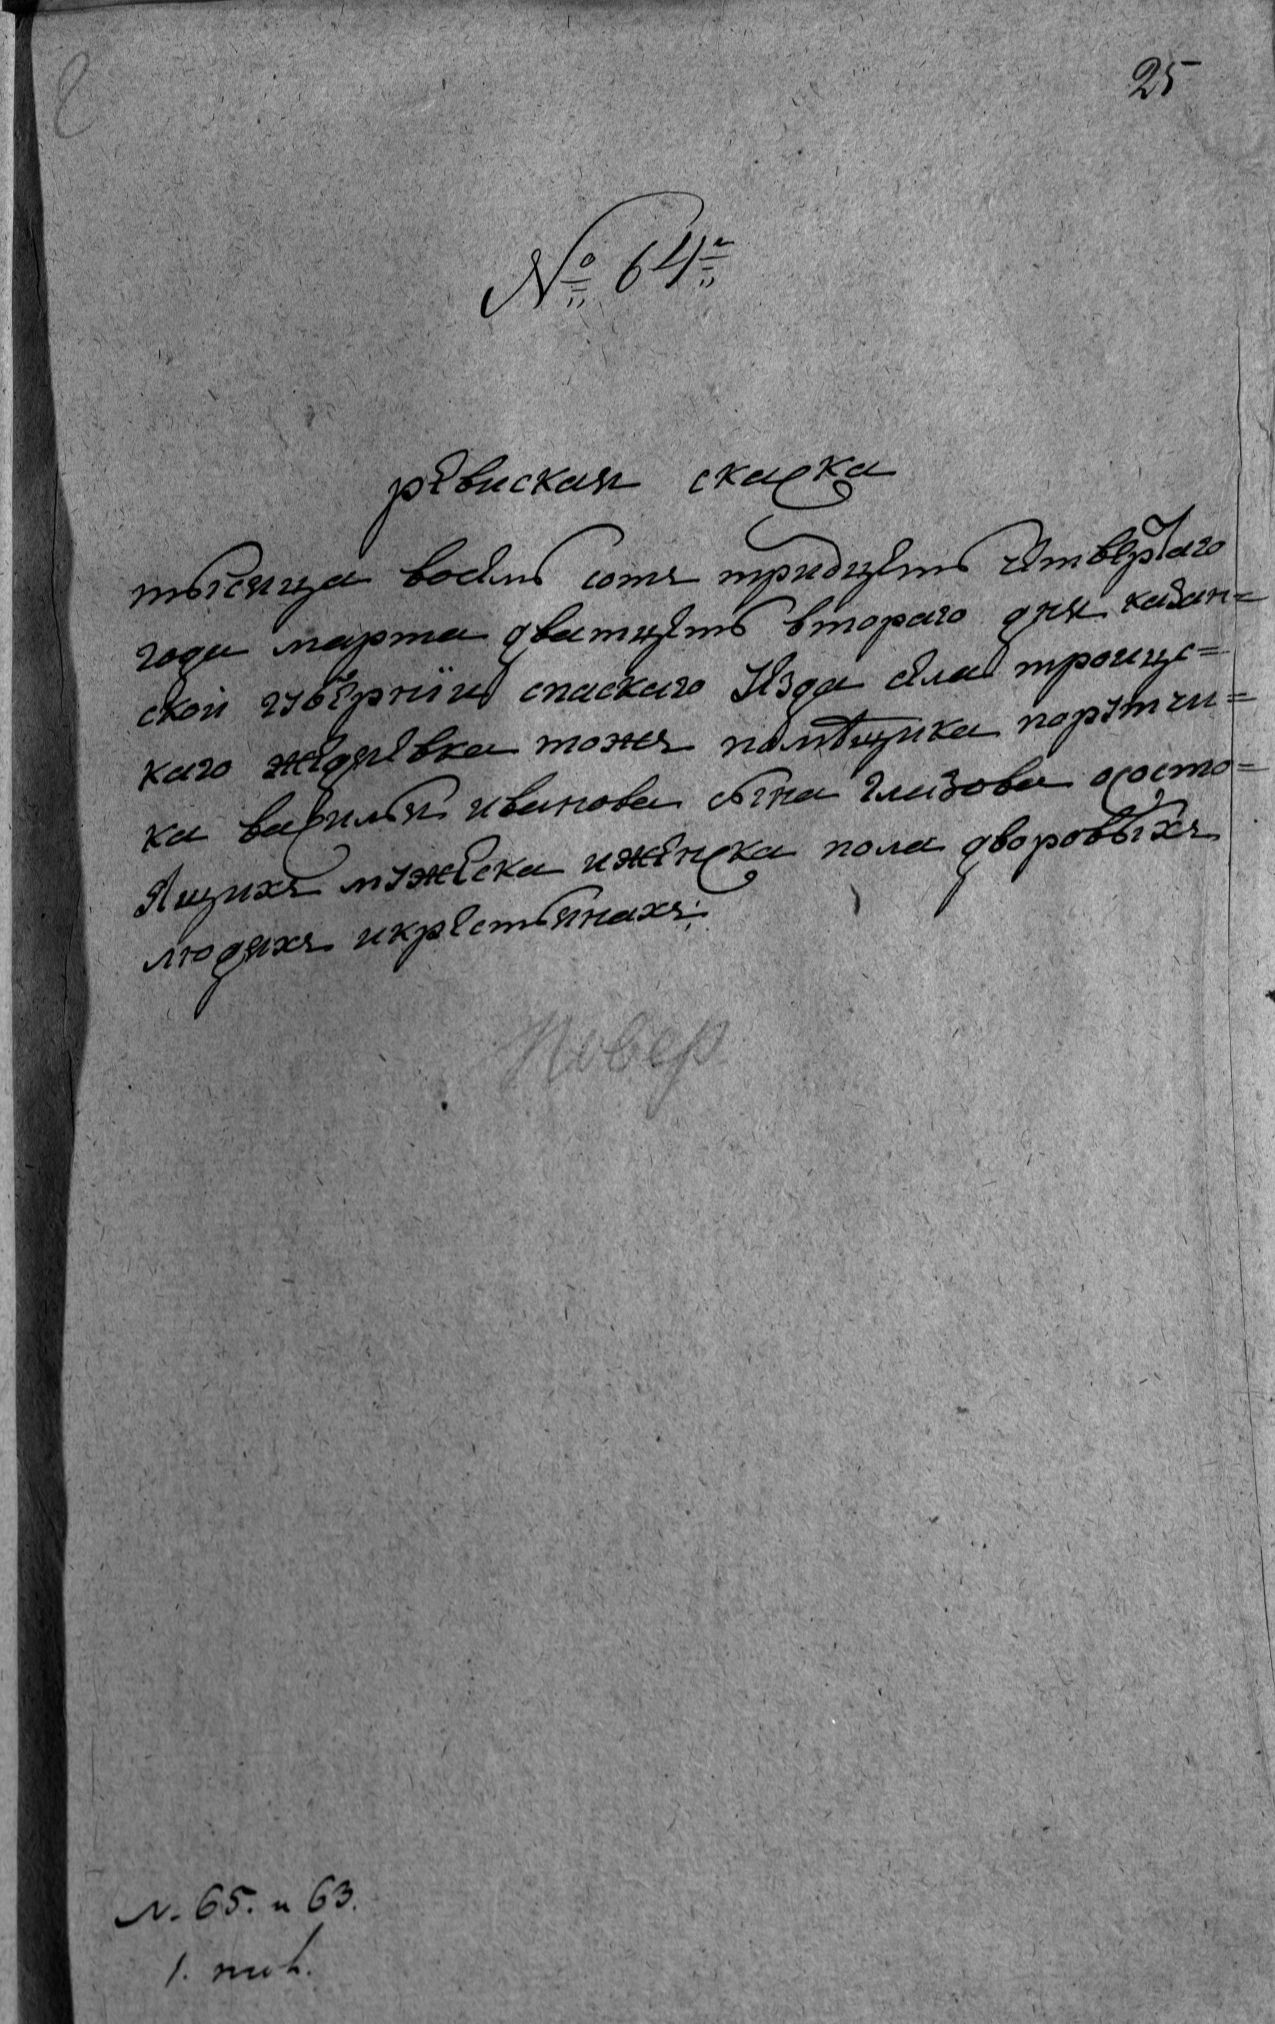 25
№ 64й
ревиская скаска
тысяча восемь сотъ тридцеть четвертаго
года марта дватцеть втораго дня казан=
ской губерніи спаскаго уезда села троицс=
каго жедяевка тожъ помѣщика порутчи=
ка василья иванова сына глазова ососто=
ящихъ мужеска иженска пола дворовыхъ
людяхъ икрестьянахъ:
Повер
N. 65. и 63.